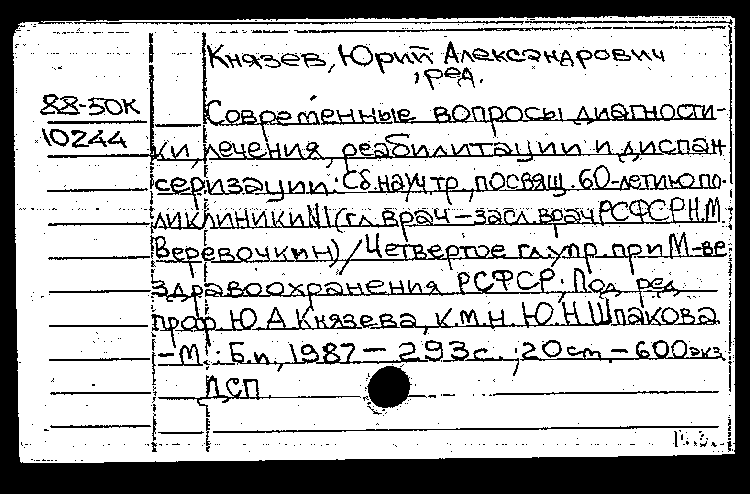 Князев, Юрий Александрович
, ред.
88-50К
10244
Современные вопросы диагности-
ки, лечения, реабилитации и диспан
серизации: Сб. науч. тр., посвящ. 60-летию по-
ликлиники N1 (гл. врач – засл. врач РСФСР Н.М.
Веревочкин) / Четвертое гл. упр. при М-ве
здравоохранения РСФСР; Под ред
проф. Ю.А. Князева, к.м.н. Ю.Н. Шпакова
– М.: Б.и., 1987 – 293 с.; 20 см. – 600 экз
ДСП.